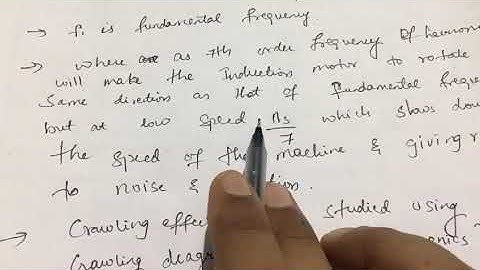 → f₁ is fundamental frequency.
→ where as 7th order frequency of harmon
will make the Induction motor to rotate
same direction as that of Fundamental freque
but at low speed ns/7 which slows dow
the speed of the machine & giving r
to noise &
→ Crawling effe studied using
Crawling diag onics